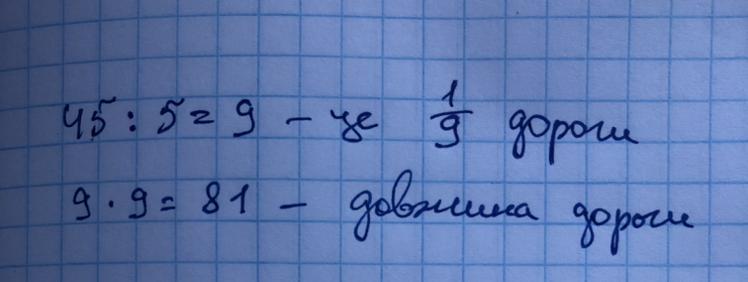 45 : 5 = 9 – це 1/9 дороги
9 · 9 = 81 – довжина дороги